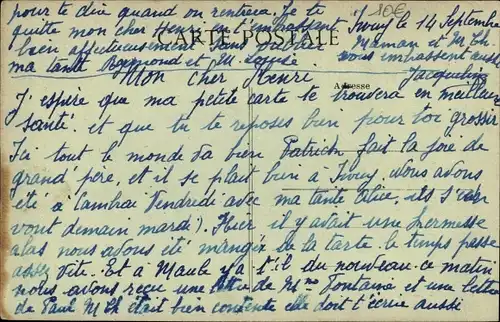 pour te dire quand on rentrera. Je te
quitte mon cher Henri en t'embrassant
bien affectueusement sans oublier
ma tante Raymond et M.
80€
Ivuy le 14 Septembre
Maman et M Th
vous embrassent aussi
Jacqueline
CARTE POSTALE
Adresse
Mon cher Henri
J'espère que ma petite carte te trouvera en meilleure
santé. et que tu te reposes bien pour toi grossir
Ici tout le monde va bien Patrick fait la joie de
grand père, et il se plait bien à Ivuy. Nous avons
été à Cambrai Vendredi avec ma tante Alice, ils s'en
vont demain mardi). Hier il y avait une kermesse
alas nous avons été mangés de la tarte. le temps passe
assez vite. Et à Maube y'a t'il du nouveau. ce matin
nous avons reçu une lettre de Mme Fontaine et une lettre
de Paul M Th était bien contente elle doit t'écrire aussi